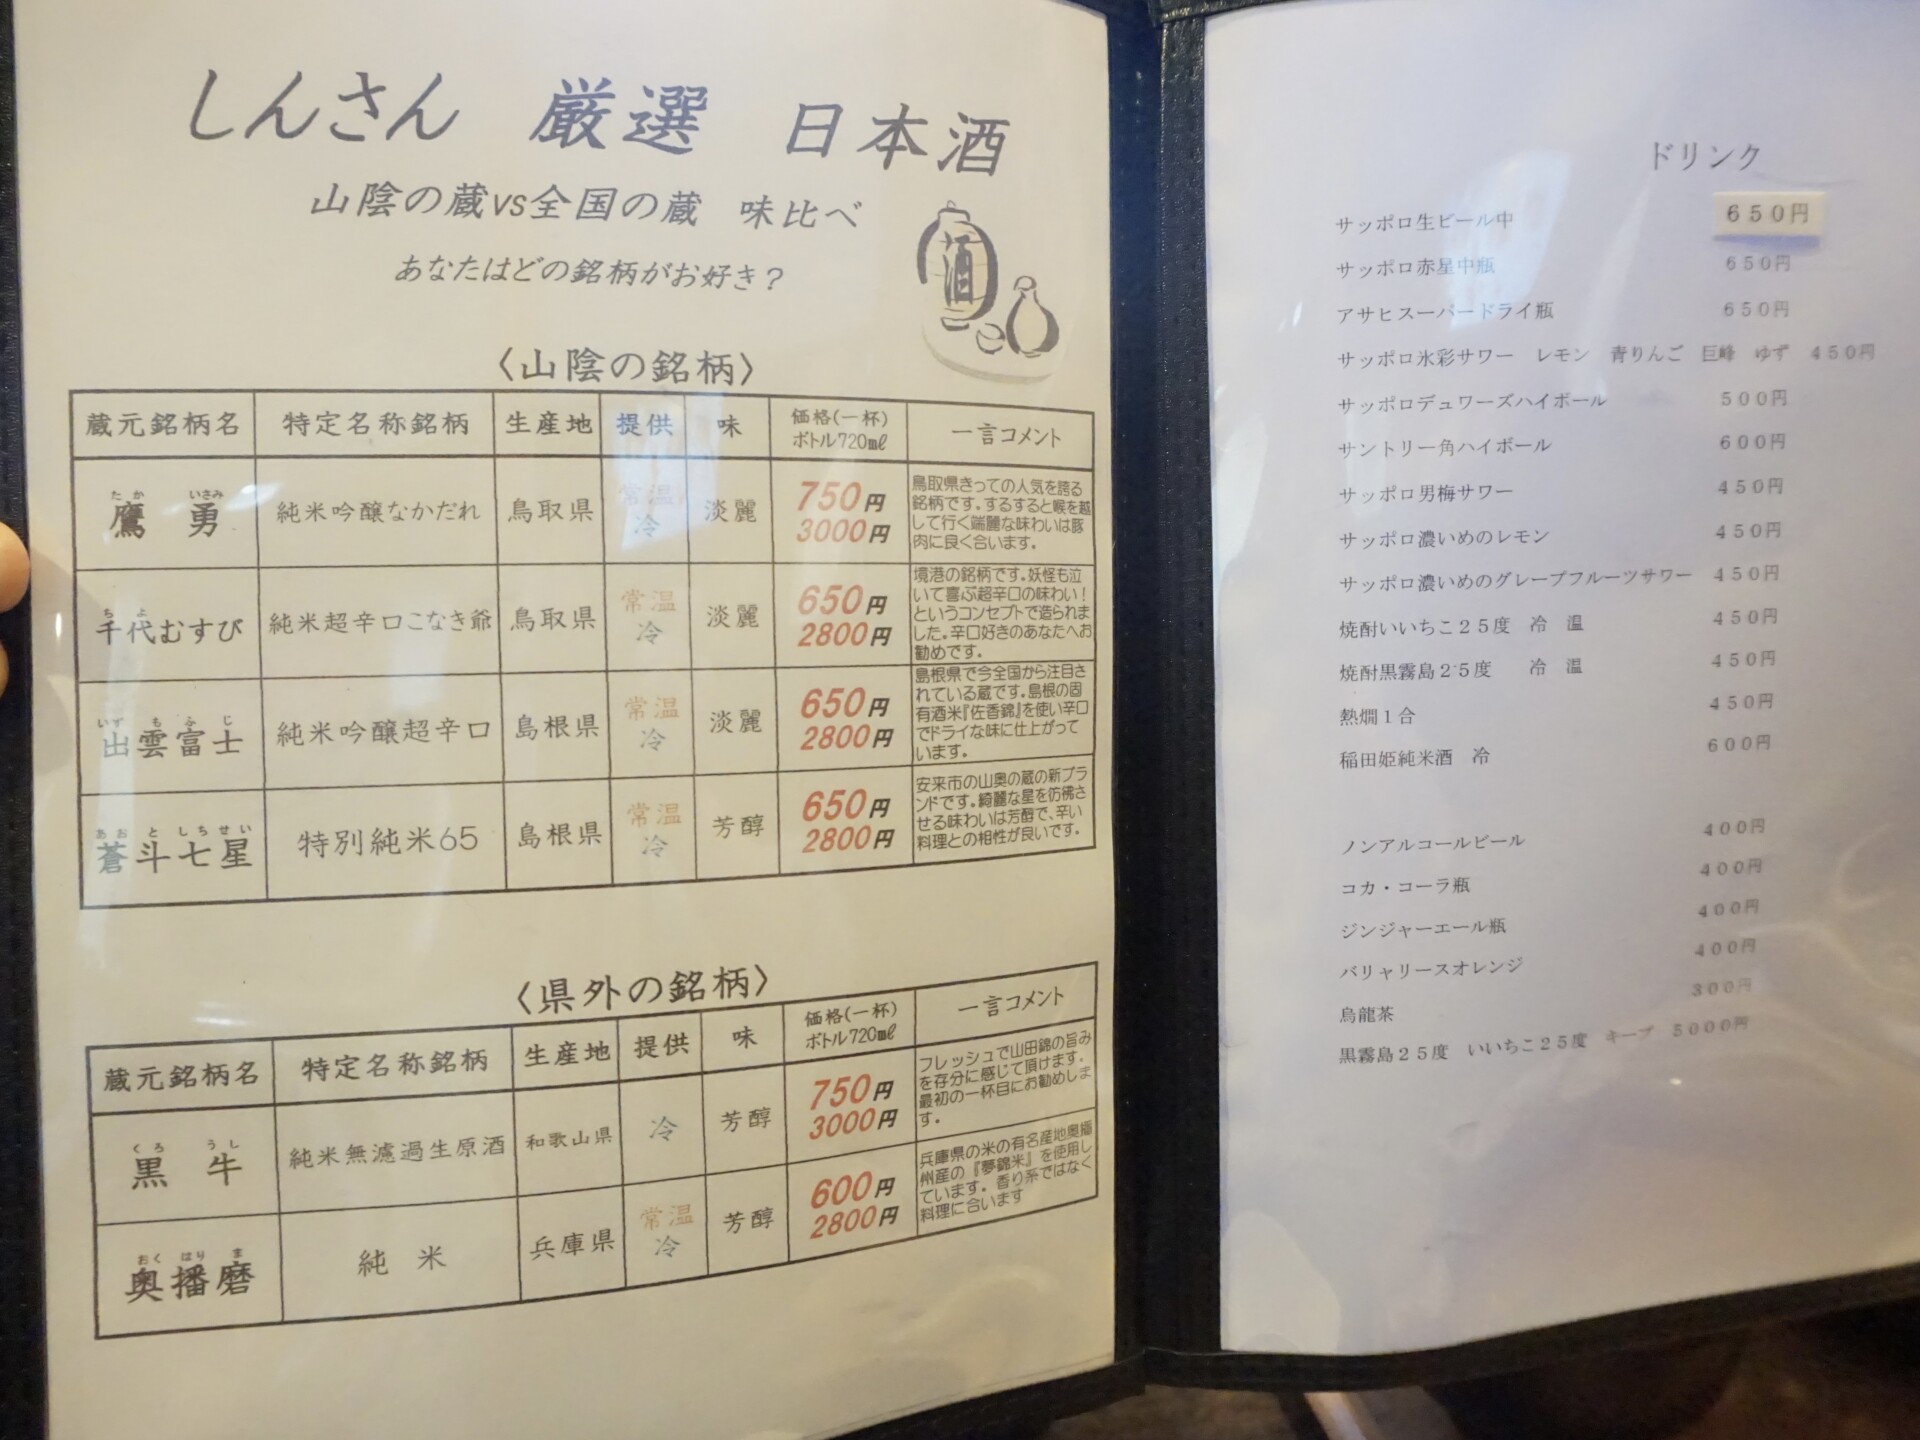 しんさん 厳選 日本酒
山陰の蔵vs全国の蔵 味比べ
あなたはどの銘柄がお好き？
酒
〈山陰の銘柄〉
蔵元銘柄名 特定名称銘柄 生産地 提供 味 価格(一杯) ボトル720㎖ 一言コメント
たか いさみ
鷹 勇 純米吟醸なかだれ 鳥取県 常温 冷 淡麗 750円 3000円
鳥取県きっての人気を誇る
銘柄です。するすると喉を越
して行く端麗な味わいは豚
肉に良く合います。
ちよ
千代むすび 純米超辛口こなき爺 鳥取県 常温 冷 淡麗 650円 2800円
境港の銘柄です。妖怪も泣
いて喜ぶ超辛口の味わい！
というコンセプトで造られま
した。辛口好きのあなたへお
勧めです。
いずもふじ
出雲富士 純米吟醸超辛口 島根県 常温 冷 淡麗 650円 2800円
島根県で今全国から注目さ
れている蔵です。島根の固
有酒米『佐香錦』を使い辛口
でドライな味に仕上がって
います。
あおとしちせい
蒼斗七星 特別純米65 島根県 常温 冷 芳醇 650円 2800円
安来市の山奥の蔵の新ブラ
ンドです。綺麗な星を彷彿さ
せる味わいは芳醇で、辛い
料理との相性が良いです。
〈県外の銘柄〉
蔵元銘柄名 特定名称銘柄 生産地 提供 味 価格(一杯) ボトル720㎖ 一言コメント
くろ うし
黒 牛 純米無濾過生原酒 和歌山県 冷 芳醇 750円 3000円
フレッシュで山田錦の旨み
を存分に感じて頂けます。
最初の一杯目にお勧めしま
す。
おくはりま
奥播磨 純 米 兵庫県 常温 冷 芳醇 600円 2800円
兵庫県の米の有名産地奥播
州産の『夢錦米』を使用し
ています。香り系ではなく
料理に合います
ドリンク
サッポロ生ビール中 650円
サッポロ赤星中瓶 650円
アサヒスーパードライ瓶 650円
サッポロ氷彩サワー レモン 青りんご 巨峰 ゆず 450円
サッポロデュワーズハイボール 500円
サントリー角ハイボール 600円
サッポロ男梅サワー 450円
サッポロ濃いめのレモン 450円
サッポロ濃いめのグレープフルーツサワー 450円
焼酎いいちこ25度 冷 温 450円
焼酎黒霧島25度 冷 温 450円
熱燗1合 450円
稲田姫純米酒 冷 600円
ノンアルコールビール 400円
コカ・コーラ瓶 400円
ジンジャーエール瓶 400円
バリャリースオレンジ 400円
烏龍茶 300円
黒霧島25度 いいちこ25度 キープ 5000円